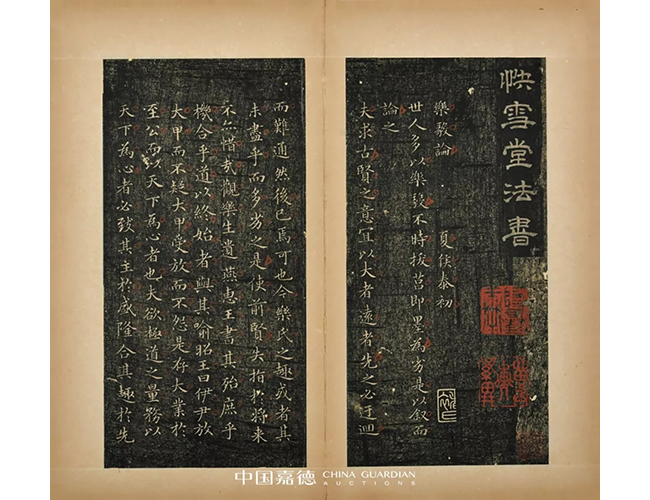 快雪堂法書
樂毅論 夏侯泰初
世人多以樂毅不時拔莒即墨為劣是以叙而
論之
夫求古賢之意宜以大者遠者先之必迂迴
而難通然後已焉可也今樂氏之趣或者其
未盡乎而多劣之是使前賢失指於將來
不亦惜哉觀樂生遺燕惠王書其殆庶乎
機合乎道以終始者與其喻昭王曰伊尹放
大甲而不疑大甲受放而不怨是存大業於
至公而以天下為心者也夫欲極道之量務以
天下為心者必致其主於盛隆合其趣於先
中国嘉德 CHINA GUARDIAN
AUCTIONS